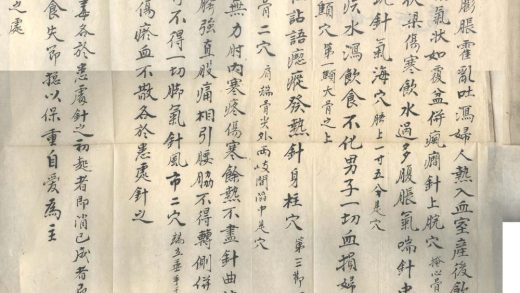 膨脹霍亂吐瀉婦人熱入血室產後飲
氣狀如覆盆併瘕針上脘穴
伏梁傷寒飲水過多腹脹氣喘針中
針氣海穴 臍上一寸五分是穴
水瀉飲食不化男子一切血損婦
顖穴 第一顖大骨之上
語瘛瘲發熱針身柱穴 第三節
骨二穴 肩端骨尖外兩岐間陷中是穴
無力肘內寒疼傷寒餘熱不盡針曲池
強直股痛相引腰脇不得轉側併
不得一切腳氣針風市二穴 端立垂手
傷瘀血不散各於患處針之
毒各於患處針之初起者即消已成者
食失節總以保重自愛為主
之處